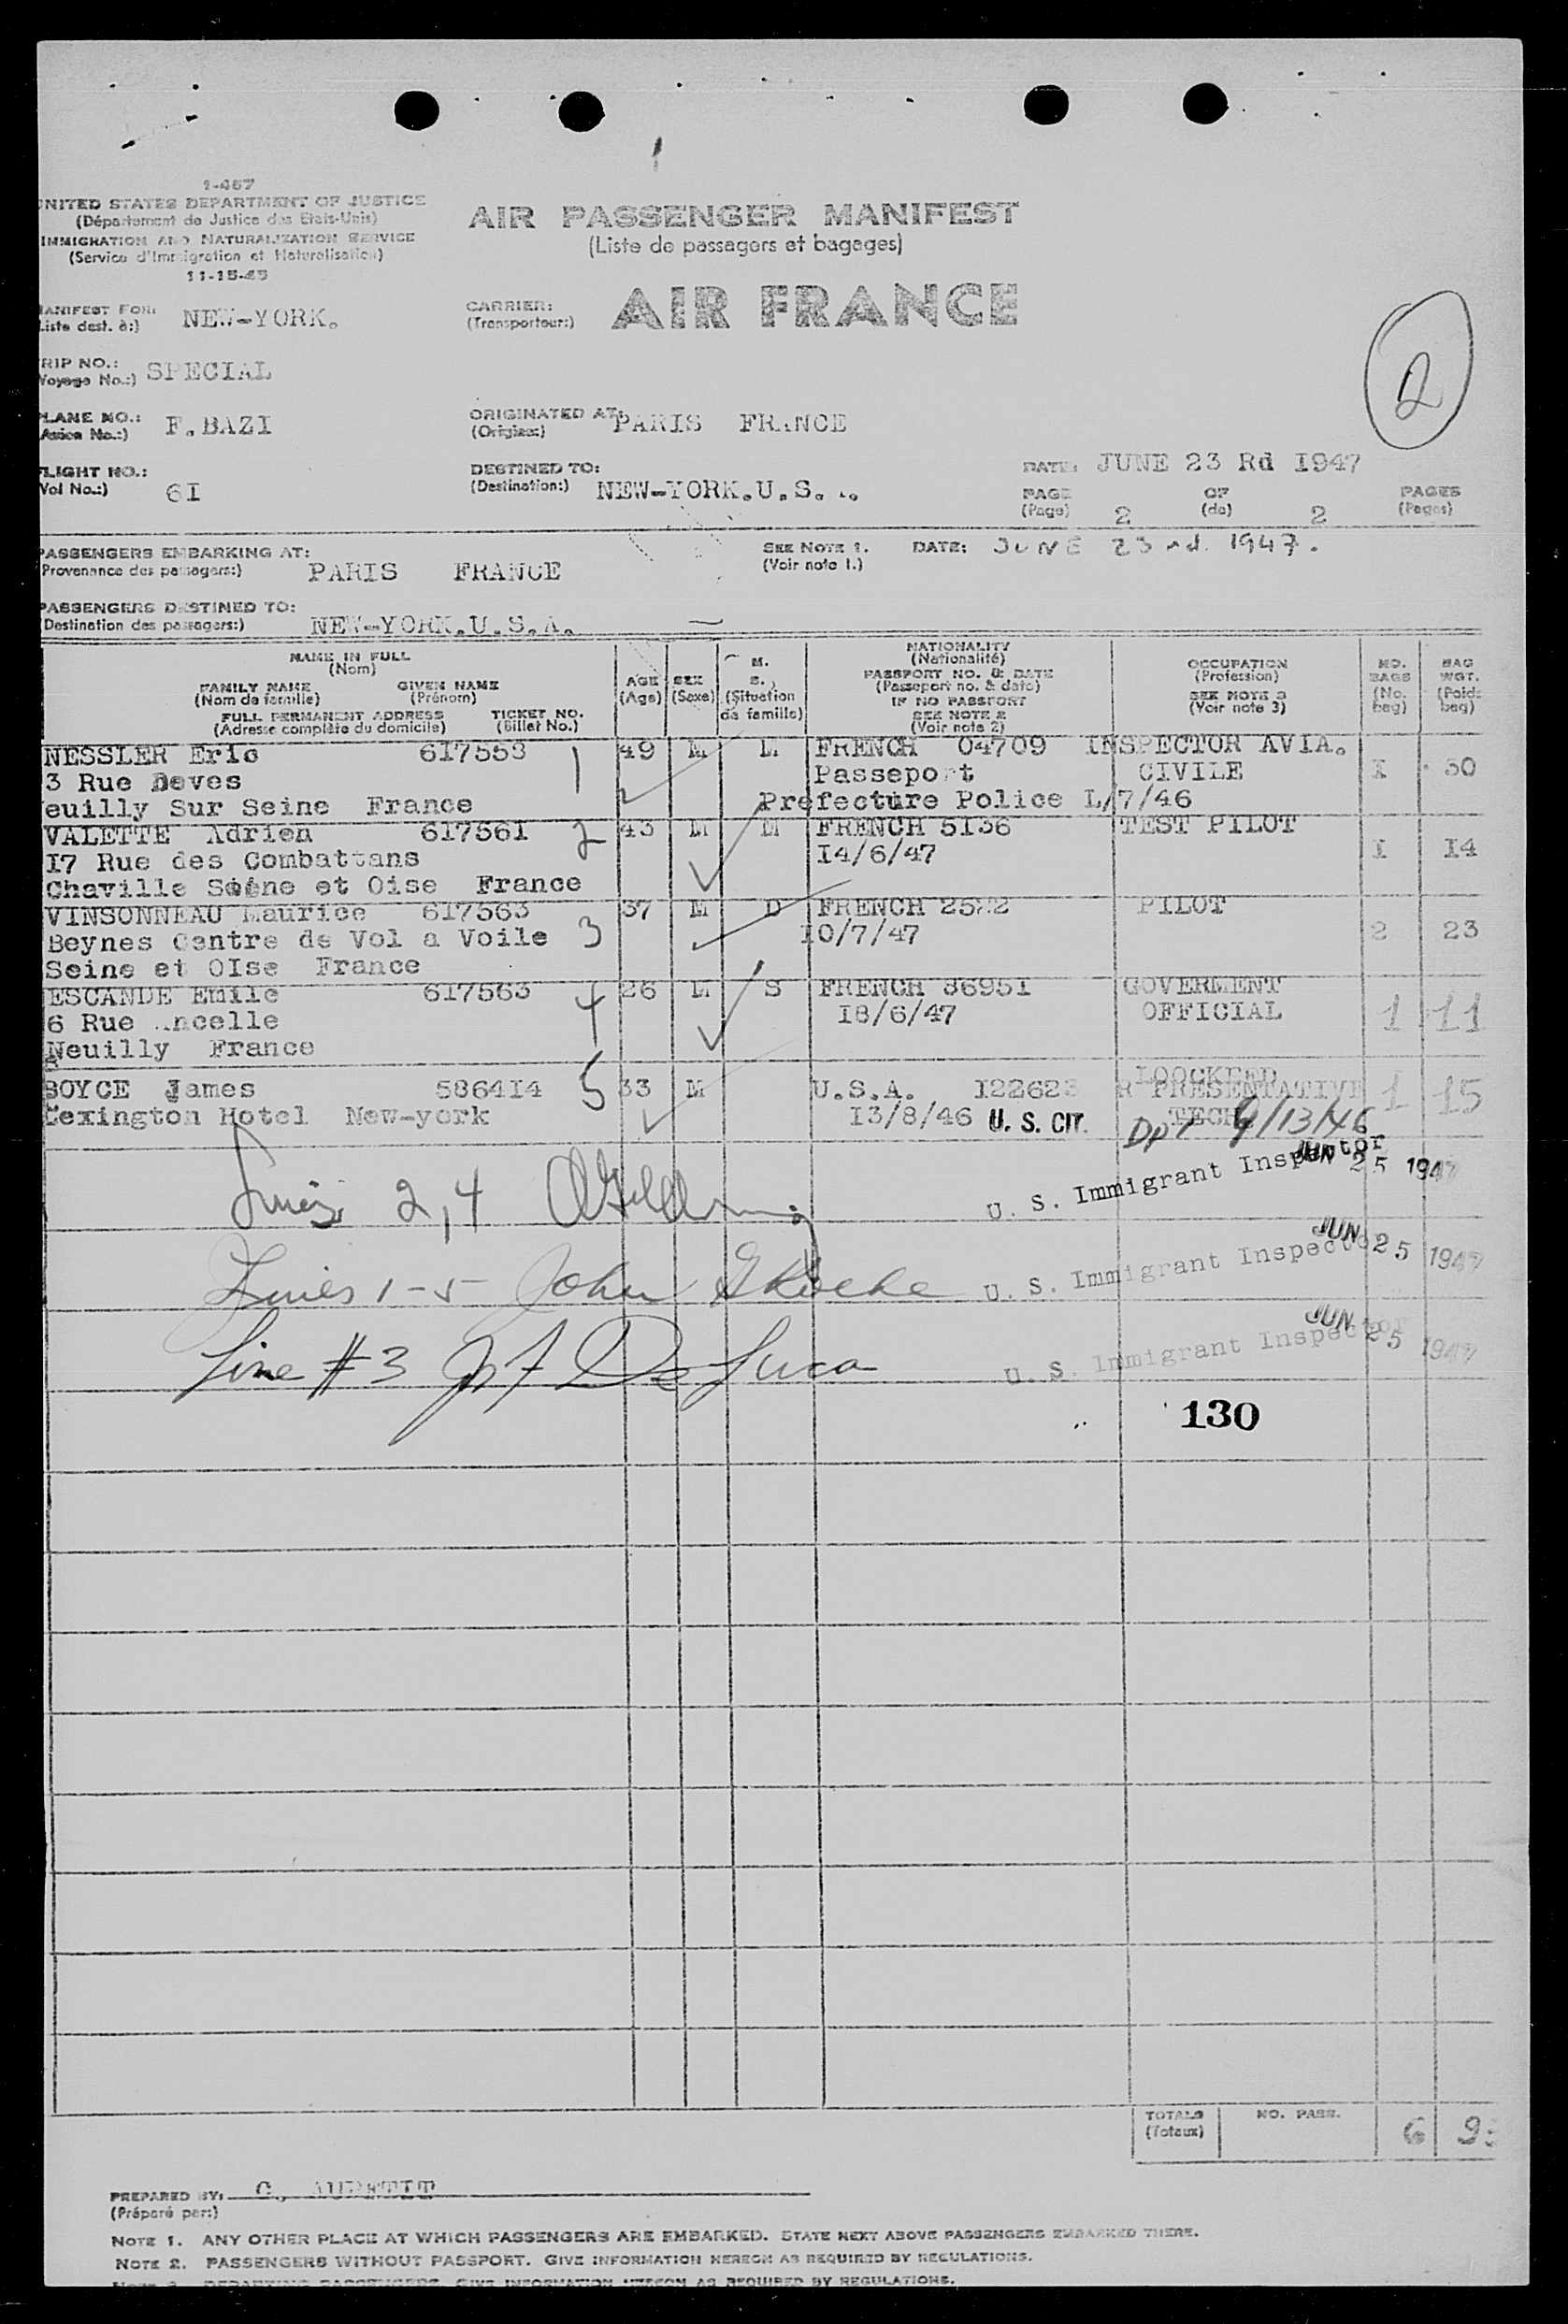 1-467
UNITED STATES DEPARTMENT OF JUSTICE
(Département de Justice des Etats-Unis)
IMMIGRATION AND NATURALIZATION SERVICE
(Service d'Immigration et Naturalisation)
11-15-45
AIR PASSENGER MANIFEST
(Liste de passagers et bagages)
MANIFEST FOR: NEW-YORK.
(Liste dest. à:)
CARRIER: AIR FRANCE
(Transporteur:)
2
TRIP NO.: SPECIAL
(Voyage No.:)
PLANE NO.: F.BAZI
(Avion No.:)
ORIGINATED AT: PARIS FRANCE
(Origine:)
FLIGHT NO.: 6I
(Vol No.:)
DESTINED TO: NEW-YORK.U.S.A.
(Destination:)
DATE: JUNE 23 Rd I947
PAGE 2 OF 2 PAGES
(Page) (de) (Pages)
PASSENGERS EMBARKING AT: PARIS FRANCE
(Provenance des passagers:)
SEE NOTE 1. DATE: JUNE 23 rd. 1947.
(Voir note 1.)
PASSENGERS DESTINED TO: NEW-YORK.U.S.A.
(Destination des passagers:)
NAME IN FULL
(Nom)
FAMILY NAME GIVEN NAME
(Nom de famille) (Prénom)
FULL PERMANENT ADDRESS TICKET NO.
(Adresse complète du domicile) (Billet No.)
AGE
(Age)
SEX
(Sexe)
M.
S.
(Situation
de famille)
NATIONALITY
(Nationalité)
PASSPORT NO. & DATE
(Passeport no. & date)
IF NO PASSPORT
SEE NOTE 2
(Voir note 2)
OCCUPATION
(Profession)
SEE NOTE 3
(Voir note 3)
NO.
BAGS
(No.
bag)
BAG
WGT.
(Poids
bag)
NESSLER Eric 617553 1 49 M M FRENCH 04709 INSPECTOR AVIA.
3 Rue Deves Passeport CIVILE I 30
euilly Sur Seine France Prefecture Police L/7/46
VALETTE Adrien 617561 2 43 M M FRENCH 5I36 TEST PILOT
I7 Rue des Combattans I4/6/47 I I4
Chaville Seine et Oise France
VINSONNEAU Maurice 617563 3 37 M D FRENCH 2522 PILOT
Beynes Centre de Vol a Voile I0/7/47 2 23
Seine et OIse France
ESCANDE Emile 617563 4 26 M S FRENCH 8695I GOVERMENT
6 Rue ncelle I8/6/47 OFFICIAL 1 11
Neuilly France
BOYCE James 5864I4 5 33 M U.S.A. I22623 LOOCKEED REPRESENTATIVE 1 15
Lexington Hotel New-york I3/8/46 U. S. CIT. TECH
Dpt 9/13/46
Lines 2,4 U. S. Immigrant Inspector JUN 25 1947
Lines 1-5 John Roche U. S. Immigrant Inspector JUN 25 1947
Line #3 De Luca U. S. Immigrant Inspector JUN 25 1947
130
TOTALS NO. PASS. 6
(Totaux)
PREPARED BY:
(Préparé par:)
NOTE 1. ANY OTHER PLACE AT WHICH PASSENGERS ARE EMBARKED. STATE NEXT ABOVE PASSENGERS EMBARKED THERE.
NOTE 2. PASSENGERS WITHOUT PASSPORT. GIVE INFORMATION HEREON AS REQUIRED BY REGULATIONS.
NOTE 3. DEPARTING PASSENGERS. GIVE INFORMATION HEREON AS REQUIRED BY REGULATIONS.